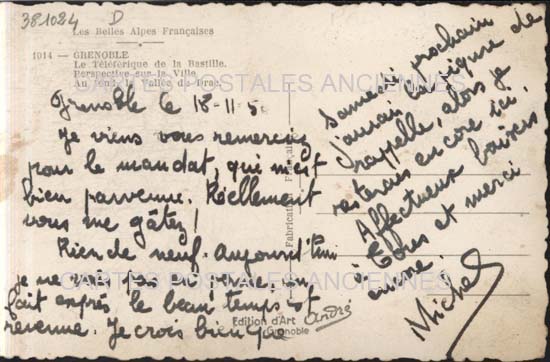 381084 D
Les Belles Alpes Françaises
1014 — GRENOBLE
Le Téléférique de la Bastille.
Perspective sur la Ville
Au fond: la Vallée du Drac.
CARTES POSTALES ANCIENNES
Grenoble le 18-11-5
Je viens vous remercier
pour le mandat, qui m'est
bien parvenu. Réellement
vous me gâtez!
Rien de neuf. Aujourd'hui
je ne vais pas au
fait exprès le beau temps est
revenu. Je crois bien que
samedi prochain
j'aurai la
rappelle, alors je
resterais encore ici.
Affectueux baisers
à Tous et merci
encore.
Michel
Fabrication Française
CARTES POSTALES ANCIENNES
Edition d'Art
André
Grenoble